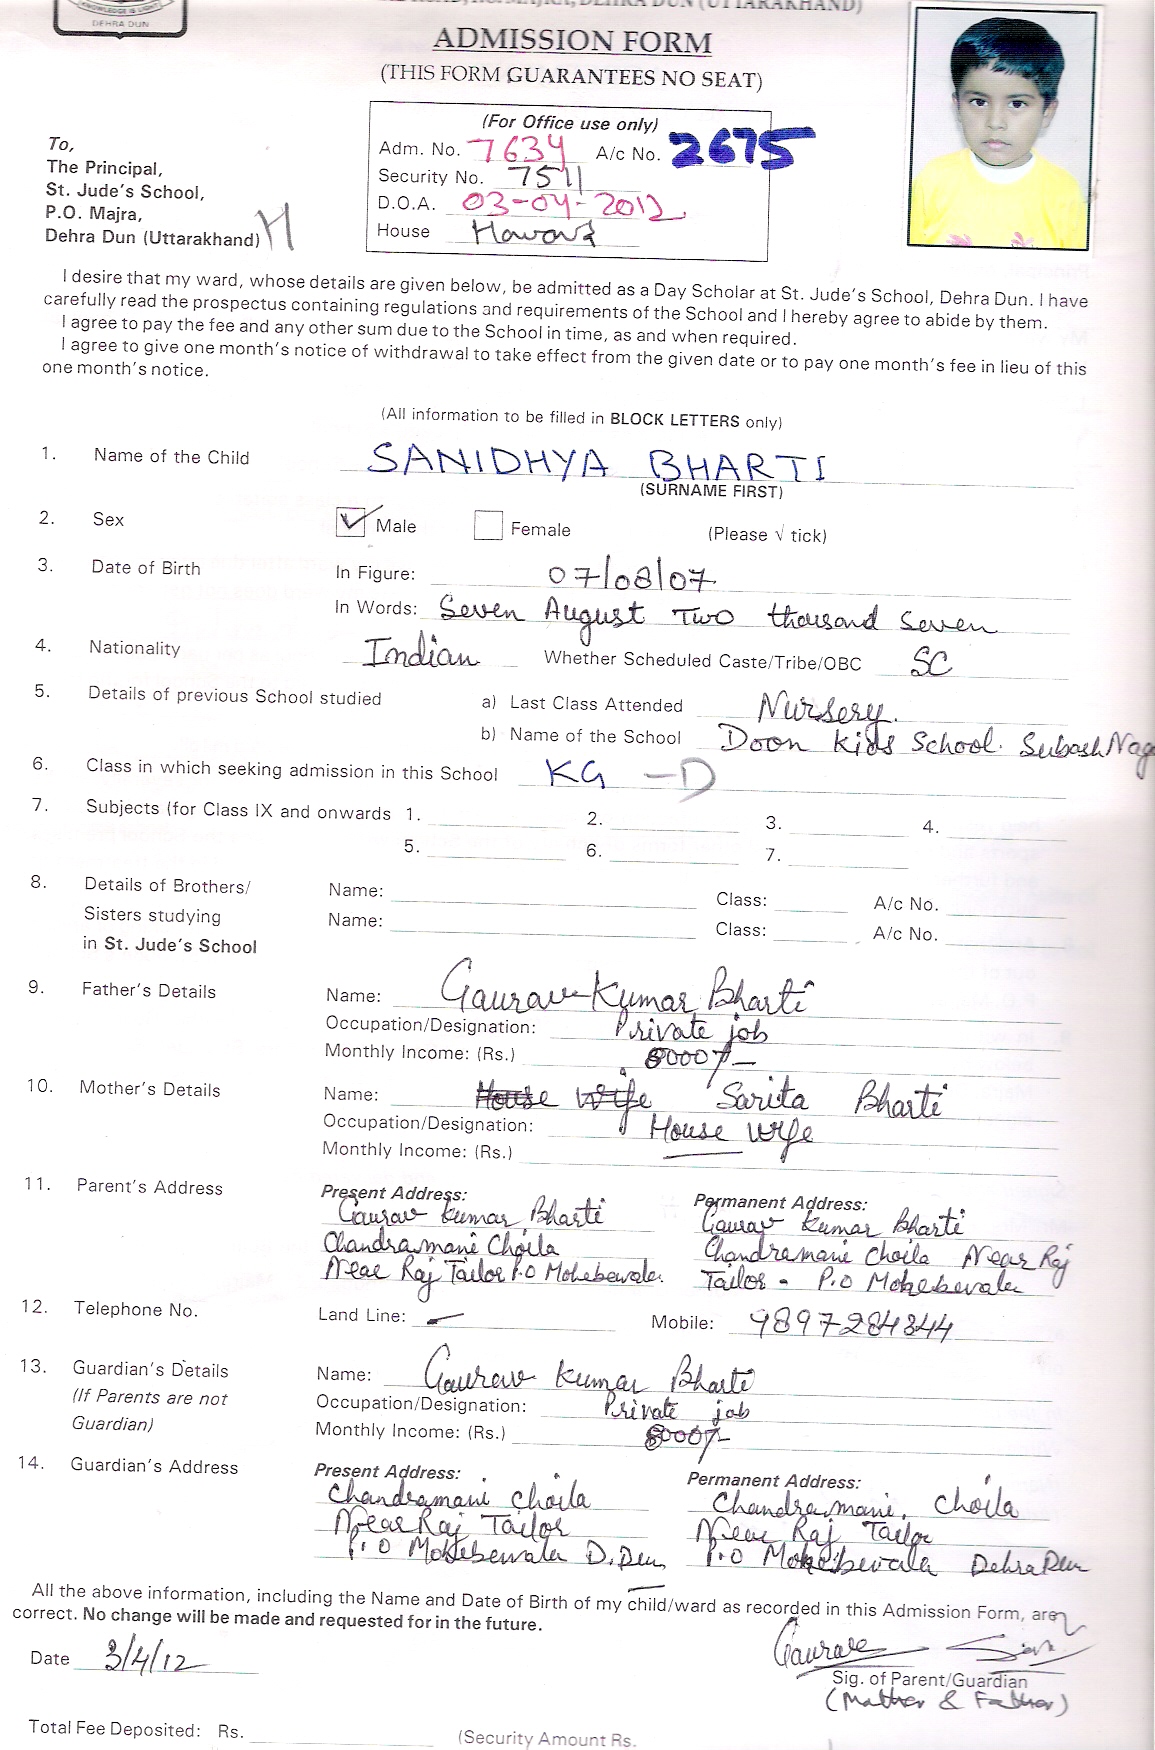 KNOWLEDGE IS LIGHT
DEHRA DUN
DEHRA DUN (UTTARAKHAND)
ADMISSION FORM
(THIS FORM GUARANTEES NO SEAT)
(For Office use only)
Adm. No. 7634 A/c No. 2675
Security No. 7511
D.O.A. 03-04-2012
House
To,
The Principal,
St. Jude's School,
P.O. Majra,
Dehra Dun (Uttarakhand) H
I desire that my ward, whose details are given below, be admitted as a Day Scholar at St. Jude's School, Dehra Dun. I have
carefully read the prospectus containing regulations and requirements of the School and I hereby agree to abide by them.
I agree to pay the fee and any other sum due to the School in time, as and when required.
I agree to give one month's notice of withdrawal to take effect from the given date or to pay one month's fee in lieu of this
one month's notice.
(All information to be filled in BLOCK LETTERS only)
1. Name of the Child SANIDHYA BHARTI
(SURNAME FIRST)
2. Sex Male Female (Please √ tick)
3. Date of Birth In Figure: 07/08/07
In Words: Seven August Two thousand Seven
4. Nationality Indian Whether Scheduled Caste/Tribe/OBC SC
5. Details of previous School studied a) Last Class Attended Nursery.
b) Name of the School Doon Kids School. Subash Nag
6. Class in which seeking admission in this School KG - D
7. Subjects (for Class IX and onwards 1. 2. 3. 4.
5. 6. 7.
8. Details of Brothers/ Name: Class: A/c No.
Sisters studying Name: Class: A/c No.
in St. Jude's School
9. Father's Details Name: Gaurav Kumar Bharti
Occupation/Designation: Private job
Monthly Income: (Rs.) 8000/-
10. Mother's Details Name: House Wife Sarita Bharti
Occupation/Designation: House Wife
Monthly Income: (Rs.)
11. Parent's Address Present Address: Permanent Address:
Gaurav Kumar Bharti Gaurav Kumar Bharti
Chandramani Choila Chandramani Choila Near Raj
Near Raj Tailor P.O Mohebewala. Tailor - P.O Mohebewala
12. Telephone No. Land Line: - Mobile: 9897284344
13. Guardian's Details Name: Gaurav Kumar Bharti
(If Parents are not Occupation/Designation: Private job
Guardian) Monthly Income: (Rs.) 8000/-
14. Guardian's Address Present Address: Permanent Address:
Chandramani Choila Chandramani. Choila
Near Raj Tailor Near Raj Tailor
P.O Mohebewala D.Dun P.O Mohebewala Dehra Dun
All the above information, including the Name and Date of Birth of my child/ward as recorded in this Admission Form, are
correct. No change will be made and requested for in the future.
Date 3/4/12 Gaurav
Sig. of Parent/Guardian
(Mother & Father)
Total Fee Deposited: Rs. (Security Amount Rs.